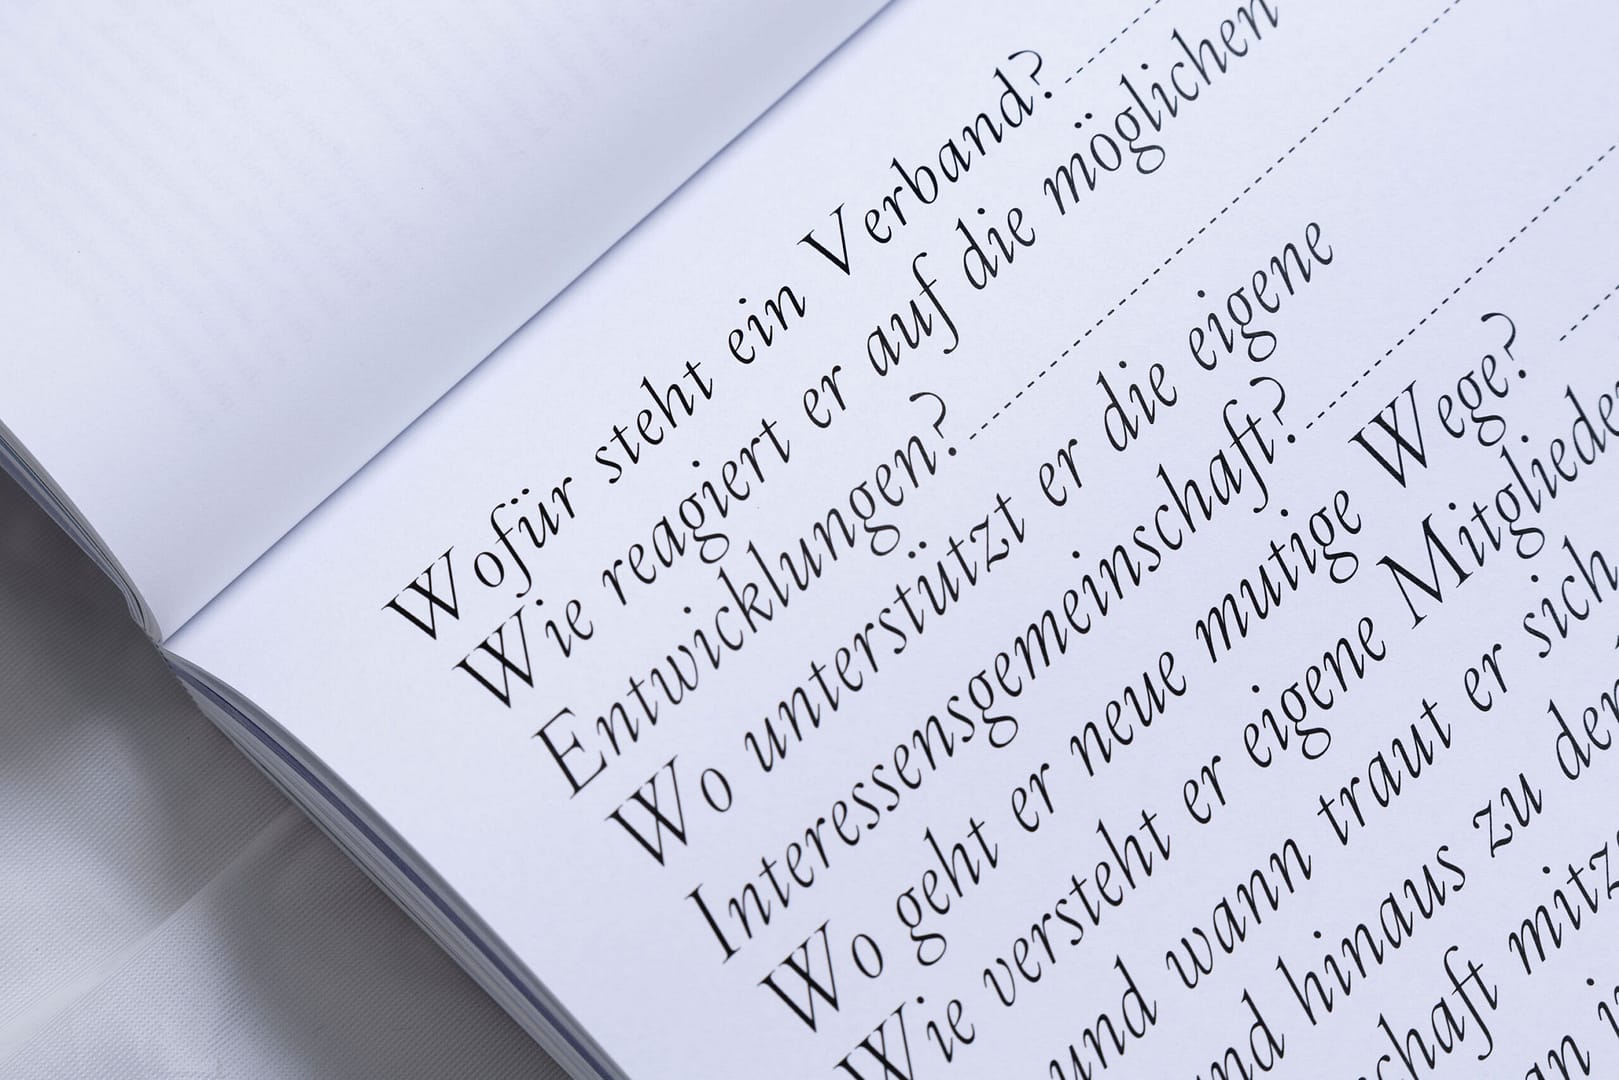 Wofür steht ein Verband?
Wie reagiert er auf die möglichen
Entwicklungen?
Wo unterstützt er die eigene
Interessensgemeinschaft?
Wo geht er neue mutige Wege?
Wie versteht er eigene
und wann traut er sich
hinaus zu